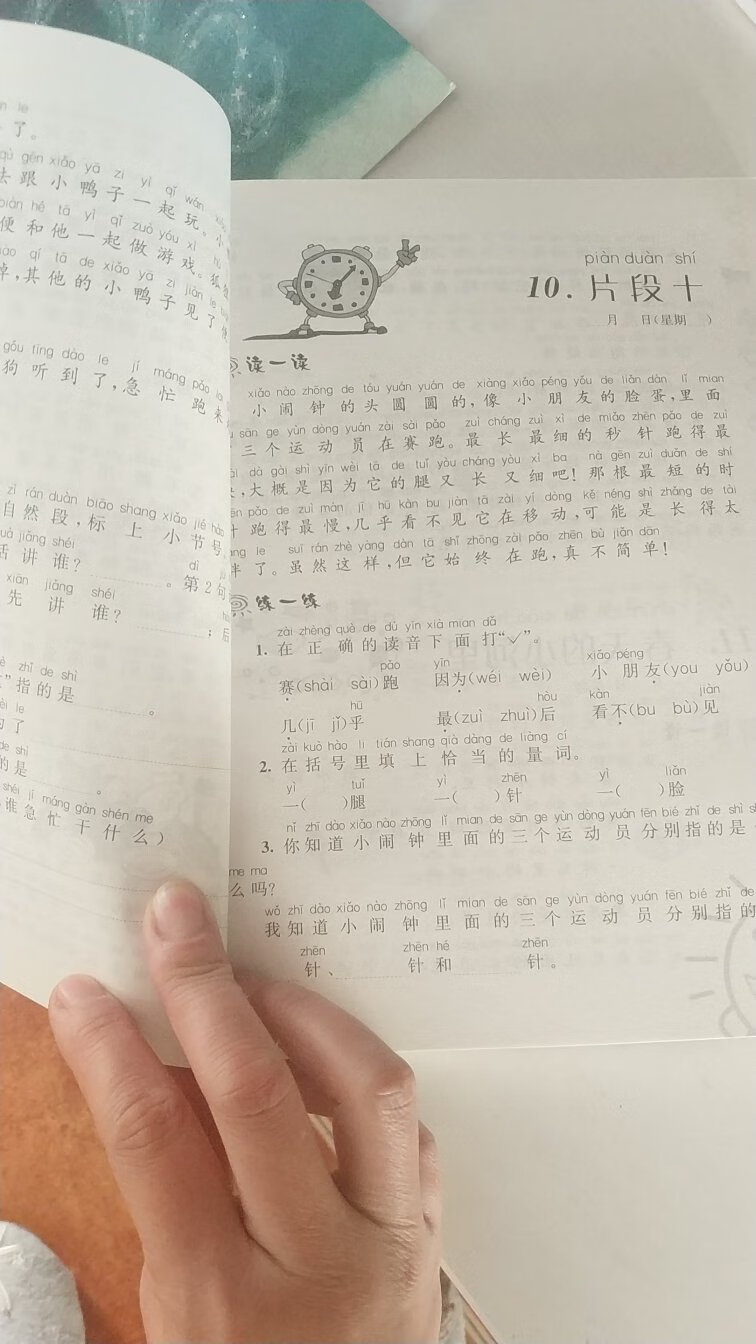 了。
qù gēn xiǎo yā zi yì qǐ wán
去跟小鸭子一起玩。小
biàn hé tā yì qǐ zuò yóu xì
便和他一起做游戏。狐狸
qí tā de xiǎo yā zi jiàn le
,其他的小鸭子见了便
gǒu tīng dào le jí máng pǎo lái
狗听到了,急忙跑来
zì rán duàn biāo shang xiǎo jié hào
自然段,标上小节号。
huà jiǎng shéi dì jù
话讲谁? 。第2句
xiān jiǎng shéi
先讲谁? ;后
zhǐ de shì
”指的是 。
le
了
de shì
的是 。
shéi jí máng gàn shén me
谁急忙干什么)
piàn duàn shí
10.片段十
月 日(星期 )
读一读
xiǎo nào zhōng de tóu yuán yuán de xiàng xiǎo péng yǒu de liǎn dàn lǐ mian
小闹钟的头圆圆的,像小朋友的脸蛋,里面
sān ge yùn dòng yuán zài sài pǎo zuì cháng zuì xì de miǎo zhēn pǎo de zuì
三个运动员在赛跑。最长最细的秒针跑得最
dà gài shì yīn wèi tā de tuǐ yòu cháng yòu xì ba nà gēn zuì duǎn de shí
,大概是因为它的腿又长又细吧!那根最短的时
pǎo de zuì màn jī hū kàn bu jiàn tā zài yí dòng kě néng shì zhǎng de tài
跑得最慢,几乎看不见它在移动,可能是长得太
le suī rán zhè yàng dàn tā shǐ zhōng zài pǎo zhēn bù jiǎn dān
胖了。虽然这样,但它始终在跑,真不简单!
练一练
zài zhèng què de dú yīn xià mian dǎ
1. 在正确的读音下面打“✓”。
pǎo yīn xiǎo péng
赛(shài sài)跑 因为(wéi wèi) 小朋友(you yǒu)
hū hòu kàn jiàn
几(jī jǐ)乎 最(zuì zhuì)后 看不(bu bù)见
zài kuò hào li tián shang qià dàng de liàng cí
2. 在括号里填上恰当的量词。
yì tuǐ yì zhēn yì liǎn
一( )腿 一( )针 一( )脸
nǐ zhī dào xiǎo nào zhōng lǐ mian de sān ge yùn dòng yuán fēn bié zhǐ de shì
3. 你知道小闹钟里面的三个运动员分别指的是
me ma
么吗?
wǒ zhī dào xiǎo nào zhōng lǐ mian de sān ge yùn dòng yuán fēn bié zhǐ de
我知道小闹钟里面的三个运动员分别指的
zhēn zhēn hé zhēn
针、 针和 针。